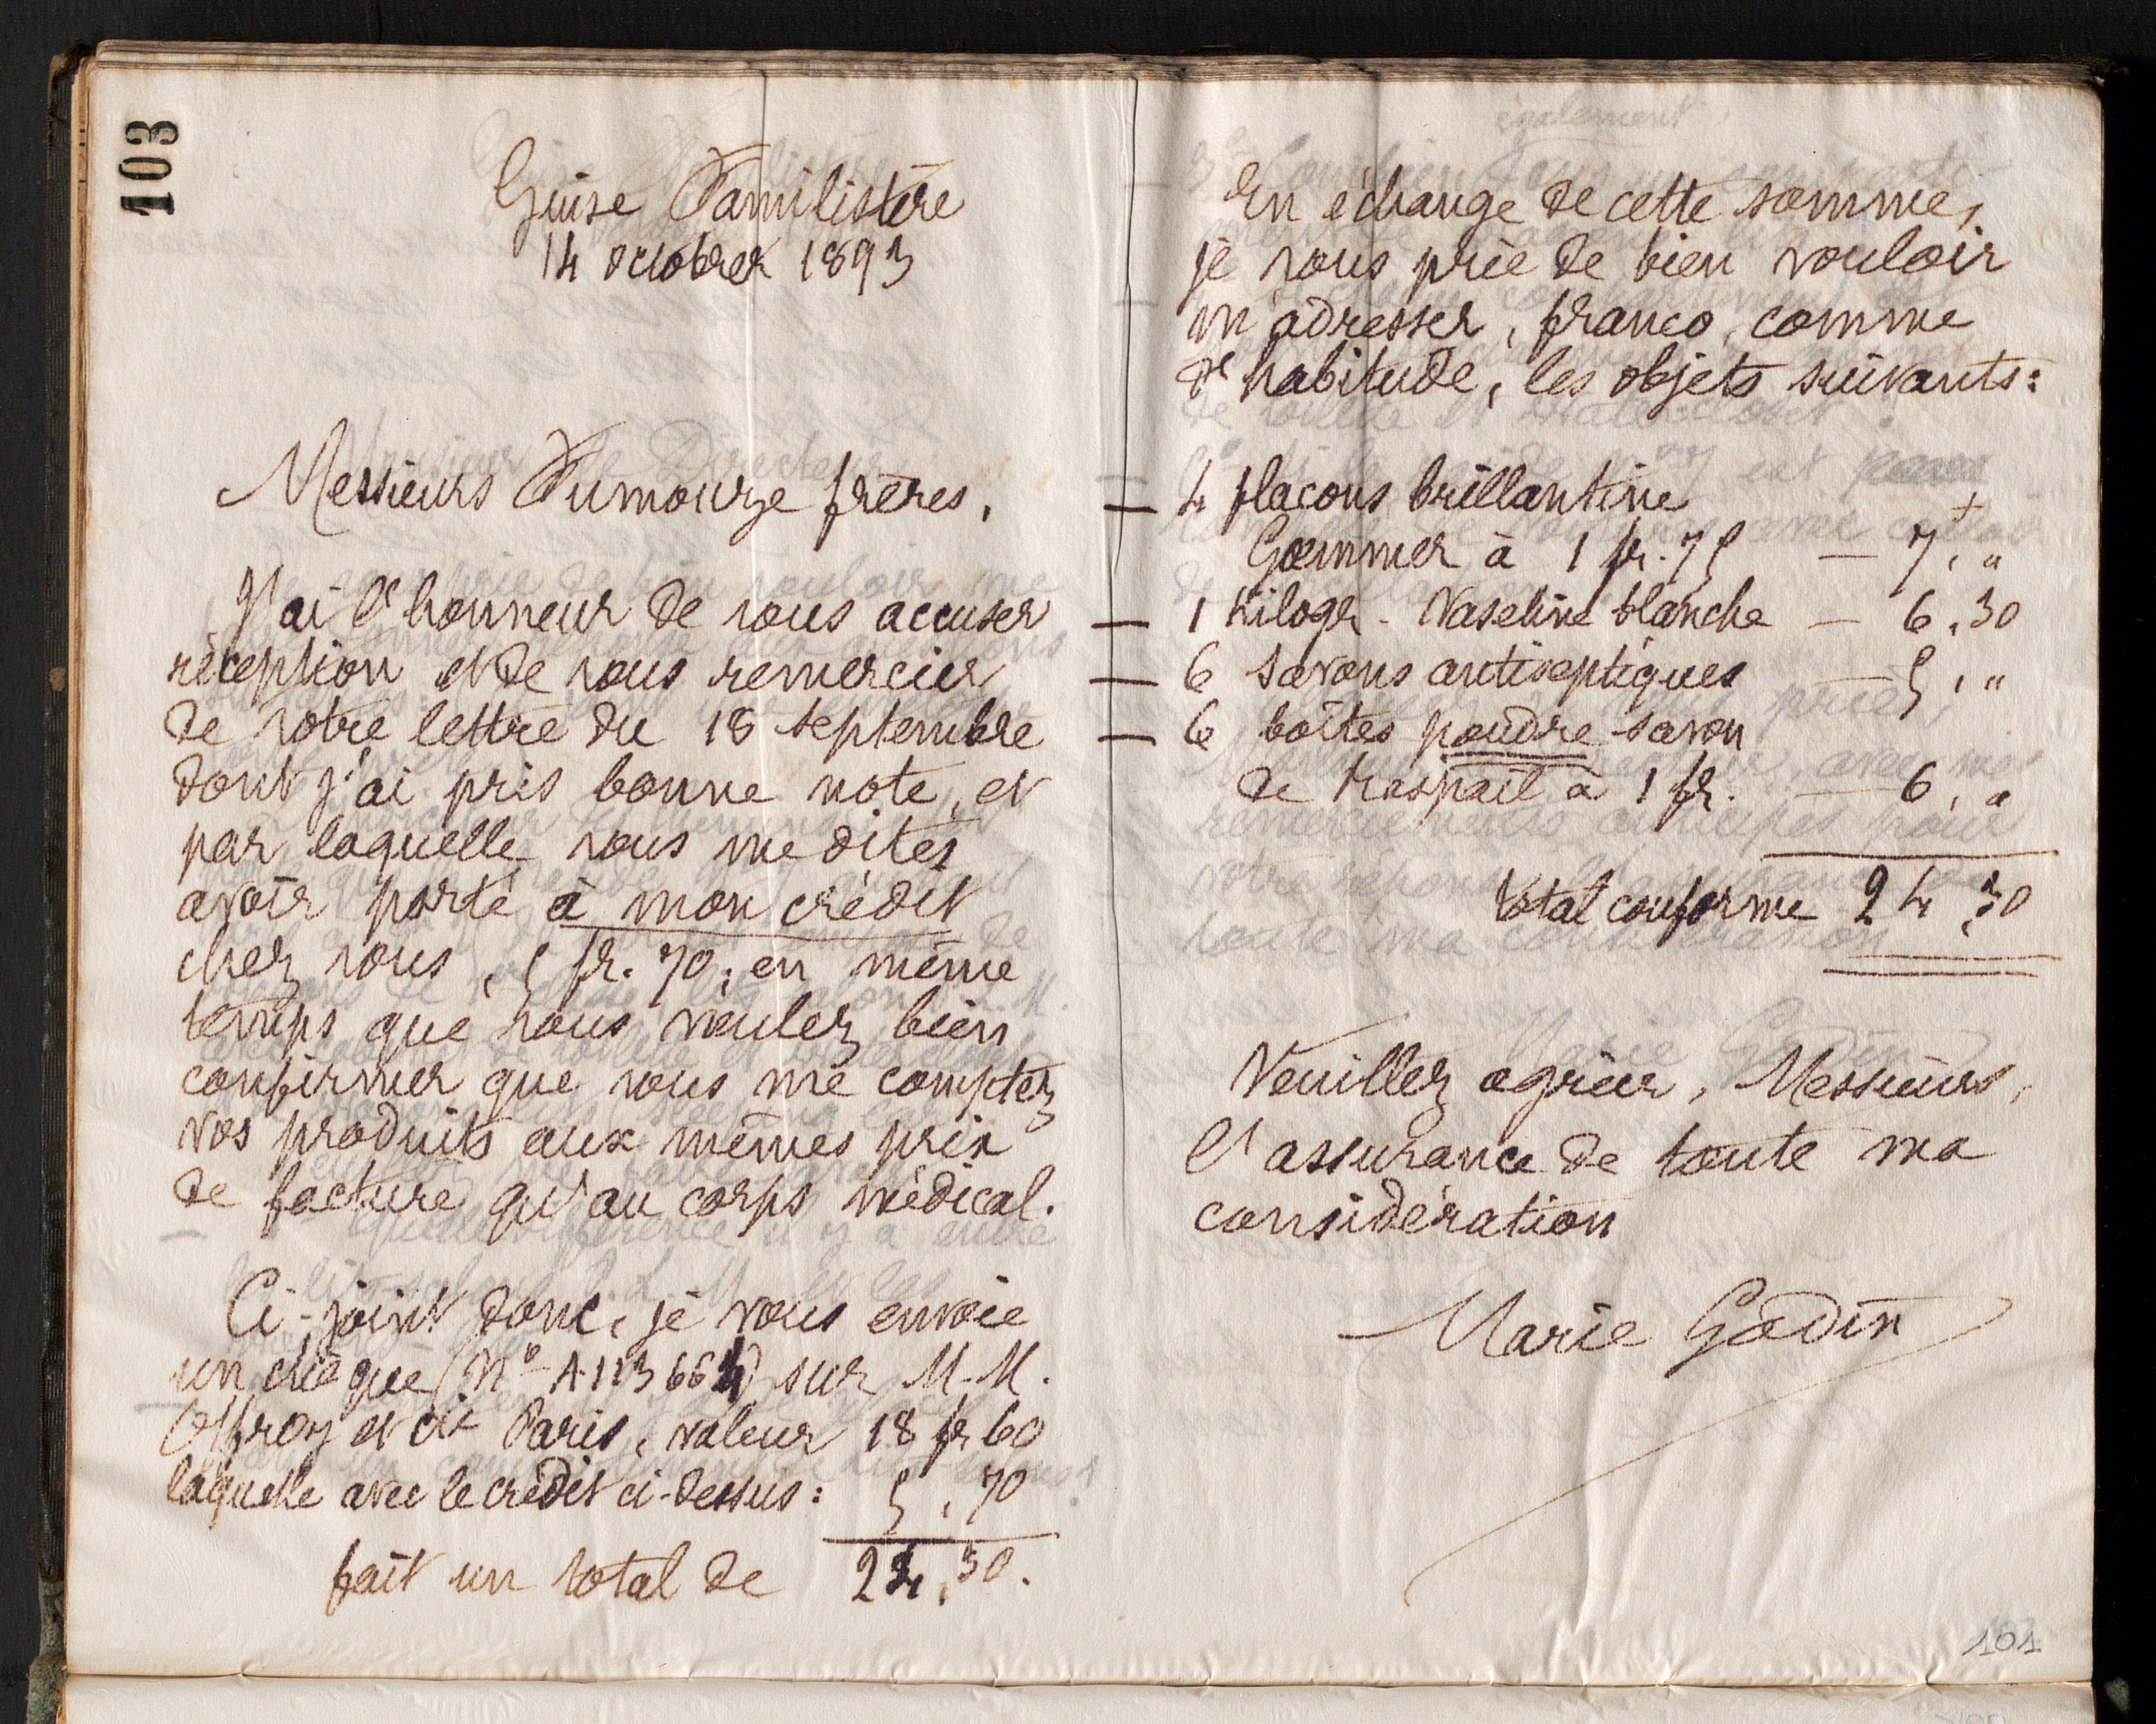 103
Guise Familistère
14 octobre 1893
Messieurs Fumouze frères,
J'ai l'honneur de vous accuser
réception et de vous remercier
de votre lettre du 18 septembre
dont j'ai pris bonne note, et
par laquelle vous me dites
avoir porté à mon crédit
chez vous, 5 fr. 70, en même
temps que vous voulez bien
confirmer que vous me comptez
vos produits aux mêmes prix
de facture qu'au corps médical.
Ci-joint donc, je vous envoie
un chèque (No A.113664) sur M.M.
Offroy et cie Paris, valeur 18 fr 60
laquelle avec le crédit ci-dessus: 5,70
fait un total de 24,30.
En échange de cette somme,
je vous prie de bien vouloir
m'adresser, franco, comme
d'habitude, les objets suivants:
— 4 flacons brillantine
à 1 fr. 75 — 7, "
— 1 Kilogr. Vaseline blanche — 6,30
— 6 savons antiseptiques 5, "
— 6 boîtes poudre savon
de Raspail à 1 fr. — 6, "
Total conforme 24 30
Veuillez agréer, Messieurs,
l'assurance de toute ma
considération
Marie Godin
101